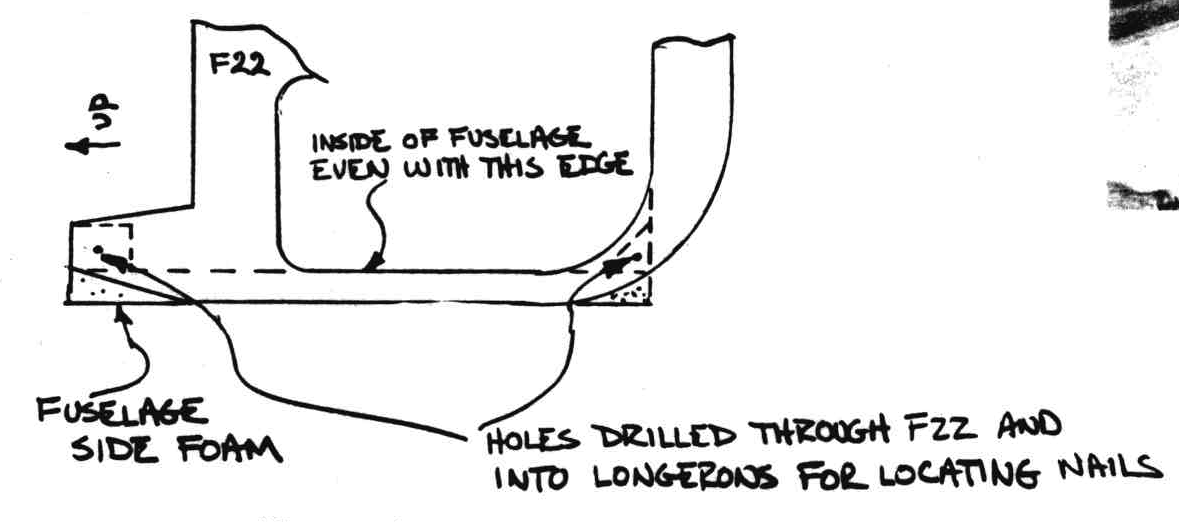 F22
UP
INSIDE OF FUSELAGE
EVEN WITH THIS EDGE
FUSELAGE
SIDE FOAM
HOLES DRILLED THROUGH F22 AND
INTO LONGERONS FOR LOCATING NAILS